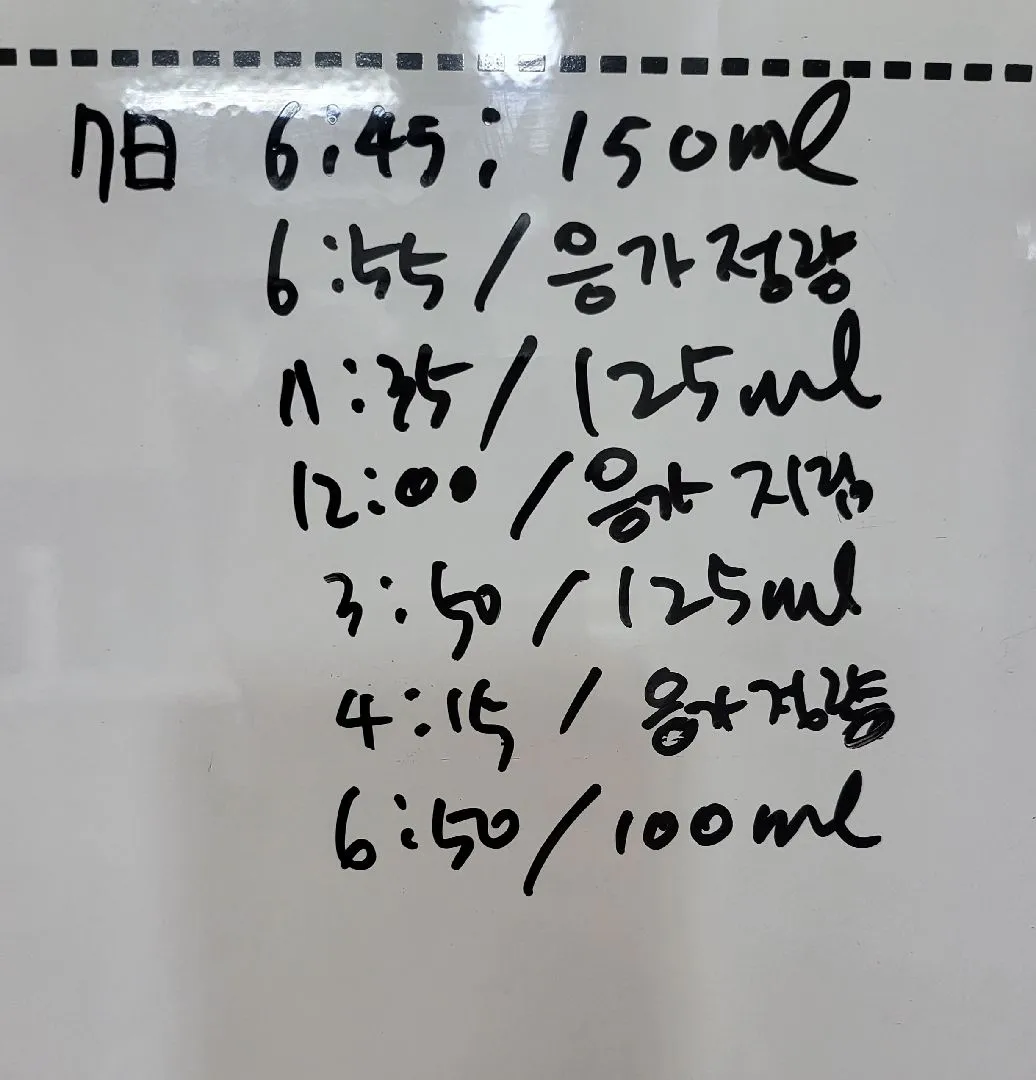 7日 6:45: 150ml
6:55/응가 정량
11:35/125ml
12:00/응가 지림
3:50/125ml
4:15/응가 정량
6:50/100ml